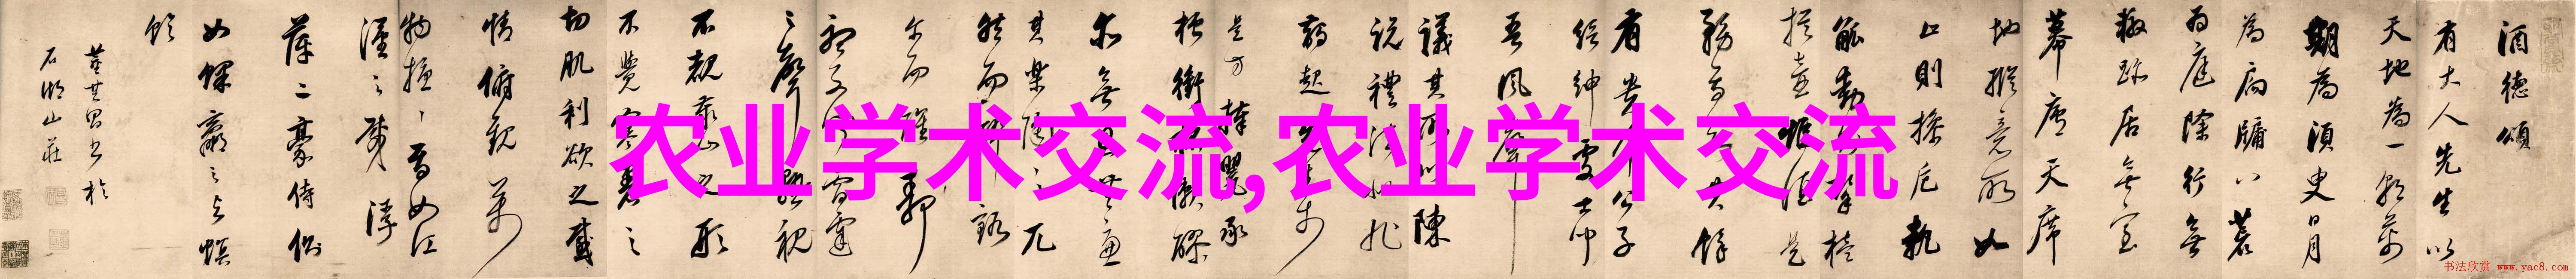 酒德頌
有大人先生以
天地為一朝萬
期為須臾日月
為扃牖八荒
為庭除行無
轍跡居無室
幕席天
地縱意所如
止則操卮執
觚動
挈榼
提壺
惟酒是
務焉
有貴介公子
縉紳處士
吾風聲
議其所以陳
說禮法
是
方捧罌承
槽銜杯漱醪
無思無慮
其樂陶陶兀
然而醉
爾而醒
聽不聞雷霆
之聲熟視
不覩泰山之形
不覺寒暑之
切肌利欲之感
情俯觀萬
物擾擾焉如江
漢之載浮
萍二豪侍側
如蜾蠃之與螟
蛉
董其昌書於
石湖山莊
农业学术交流,农业学术交流
书法欣赏 www.yac8.com